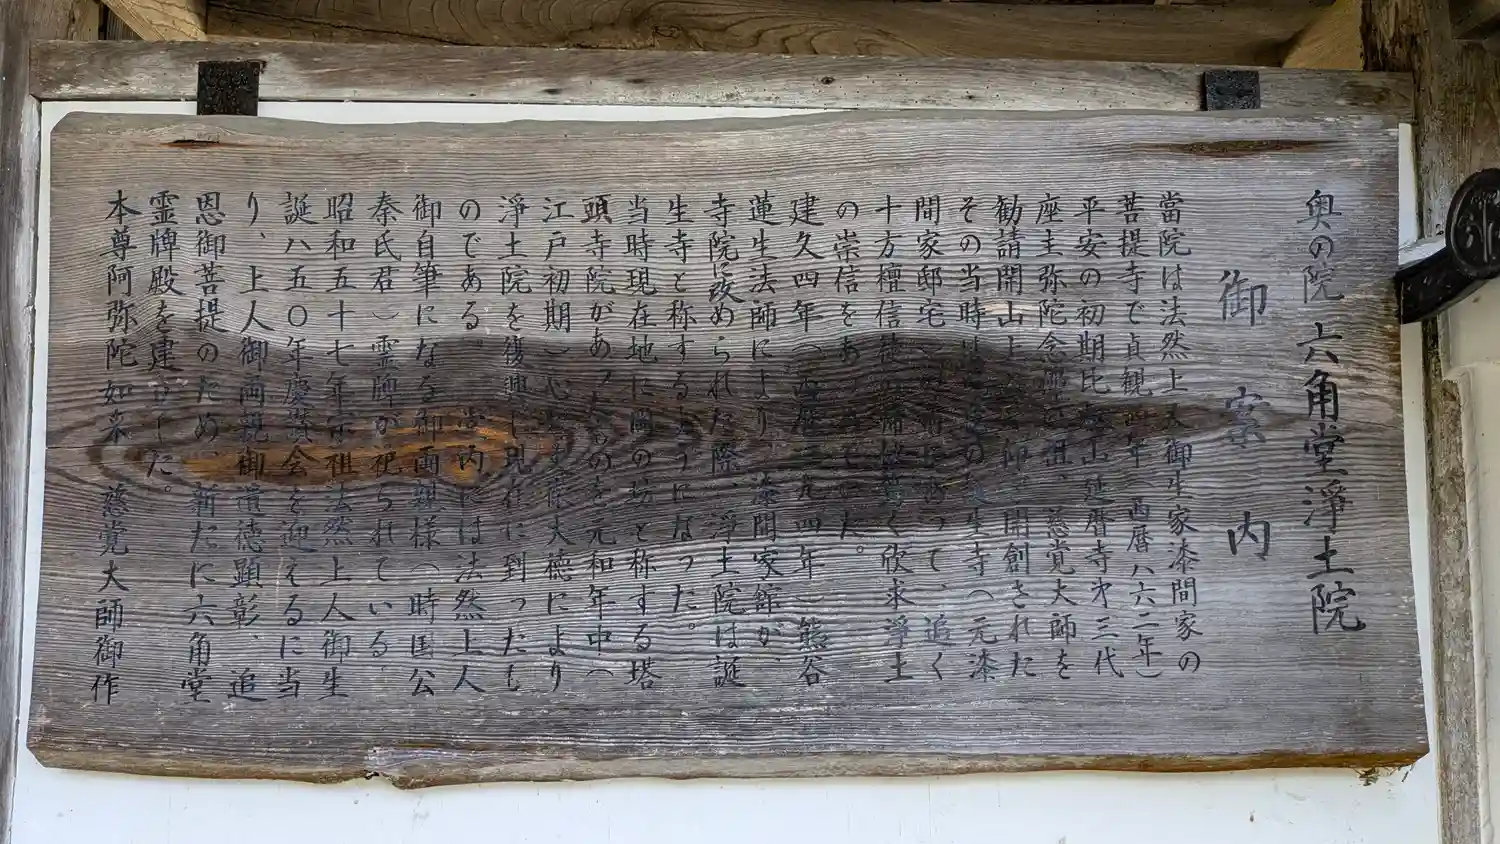 奥の院 六角堂浄土院
御案内
當院は法然上人御生家漆間家の
菩提寺で貞観四年(西暦八六二年)
平安の初期比叡山延暦寺才三代
座主弥陀念仏の祖、慈覚大師を
勧請開山上人に仰ぎ開創された
その当時は菩提の生寺(元漆
間家邸宅)の前にあって、追く
十方檀信徒の帰依篤く欣求浄土
の崇信をあつめていた。
建久四年(西暦一一九四年)熊谷
蓮生法師により漆間家館が、
寺院に改められた際、浄土院は誕
生寺と称するようになった。
当時現在地に岡の坊と称する塔
頭寺院があったものを元和年中(
江戸初期)心誉史春大徳により
浄土院を復興し現在に到ったも
のである。堂内には法然上人
御自筆になる御両親様(時国公
秦氏君)霊牌が祀られている。
昭和五十七年宗祖法然上人御生
誕八五〇年慶讃会を迎えるに当
り、上人御両親御遺徳顕彰、追
恩御菩提のため、新たに六角堂
霊牌殿を建立した。
本尊阿弥陀如来 慈覚大師御作